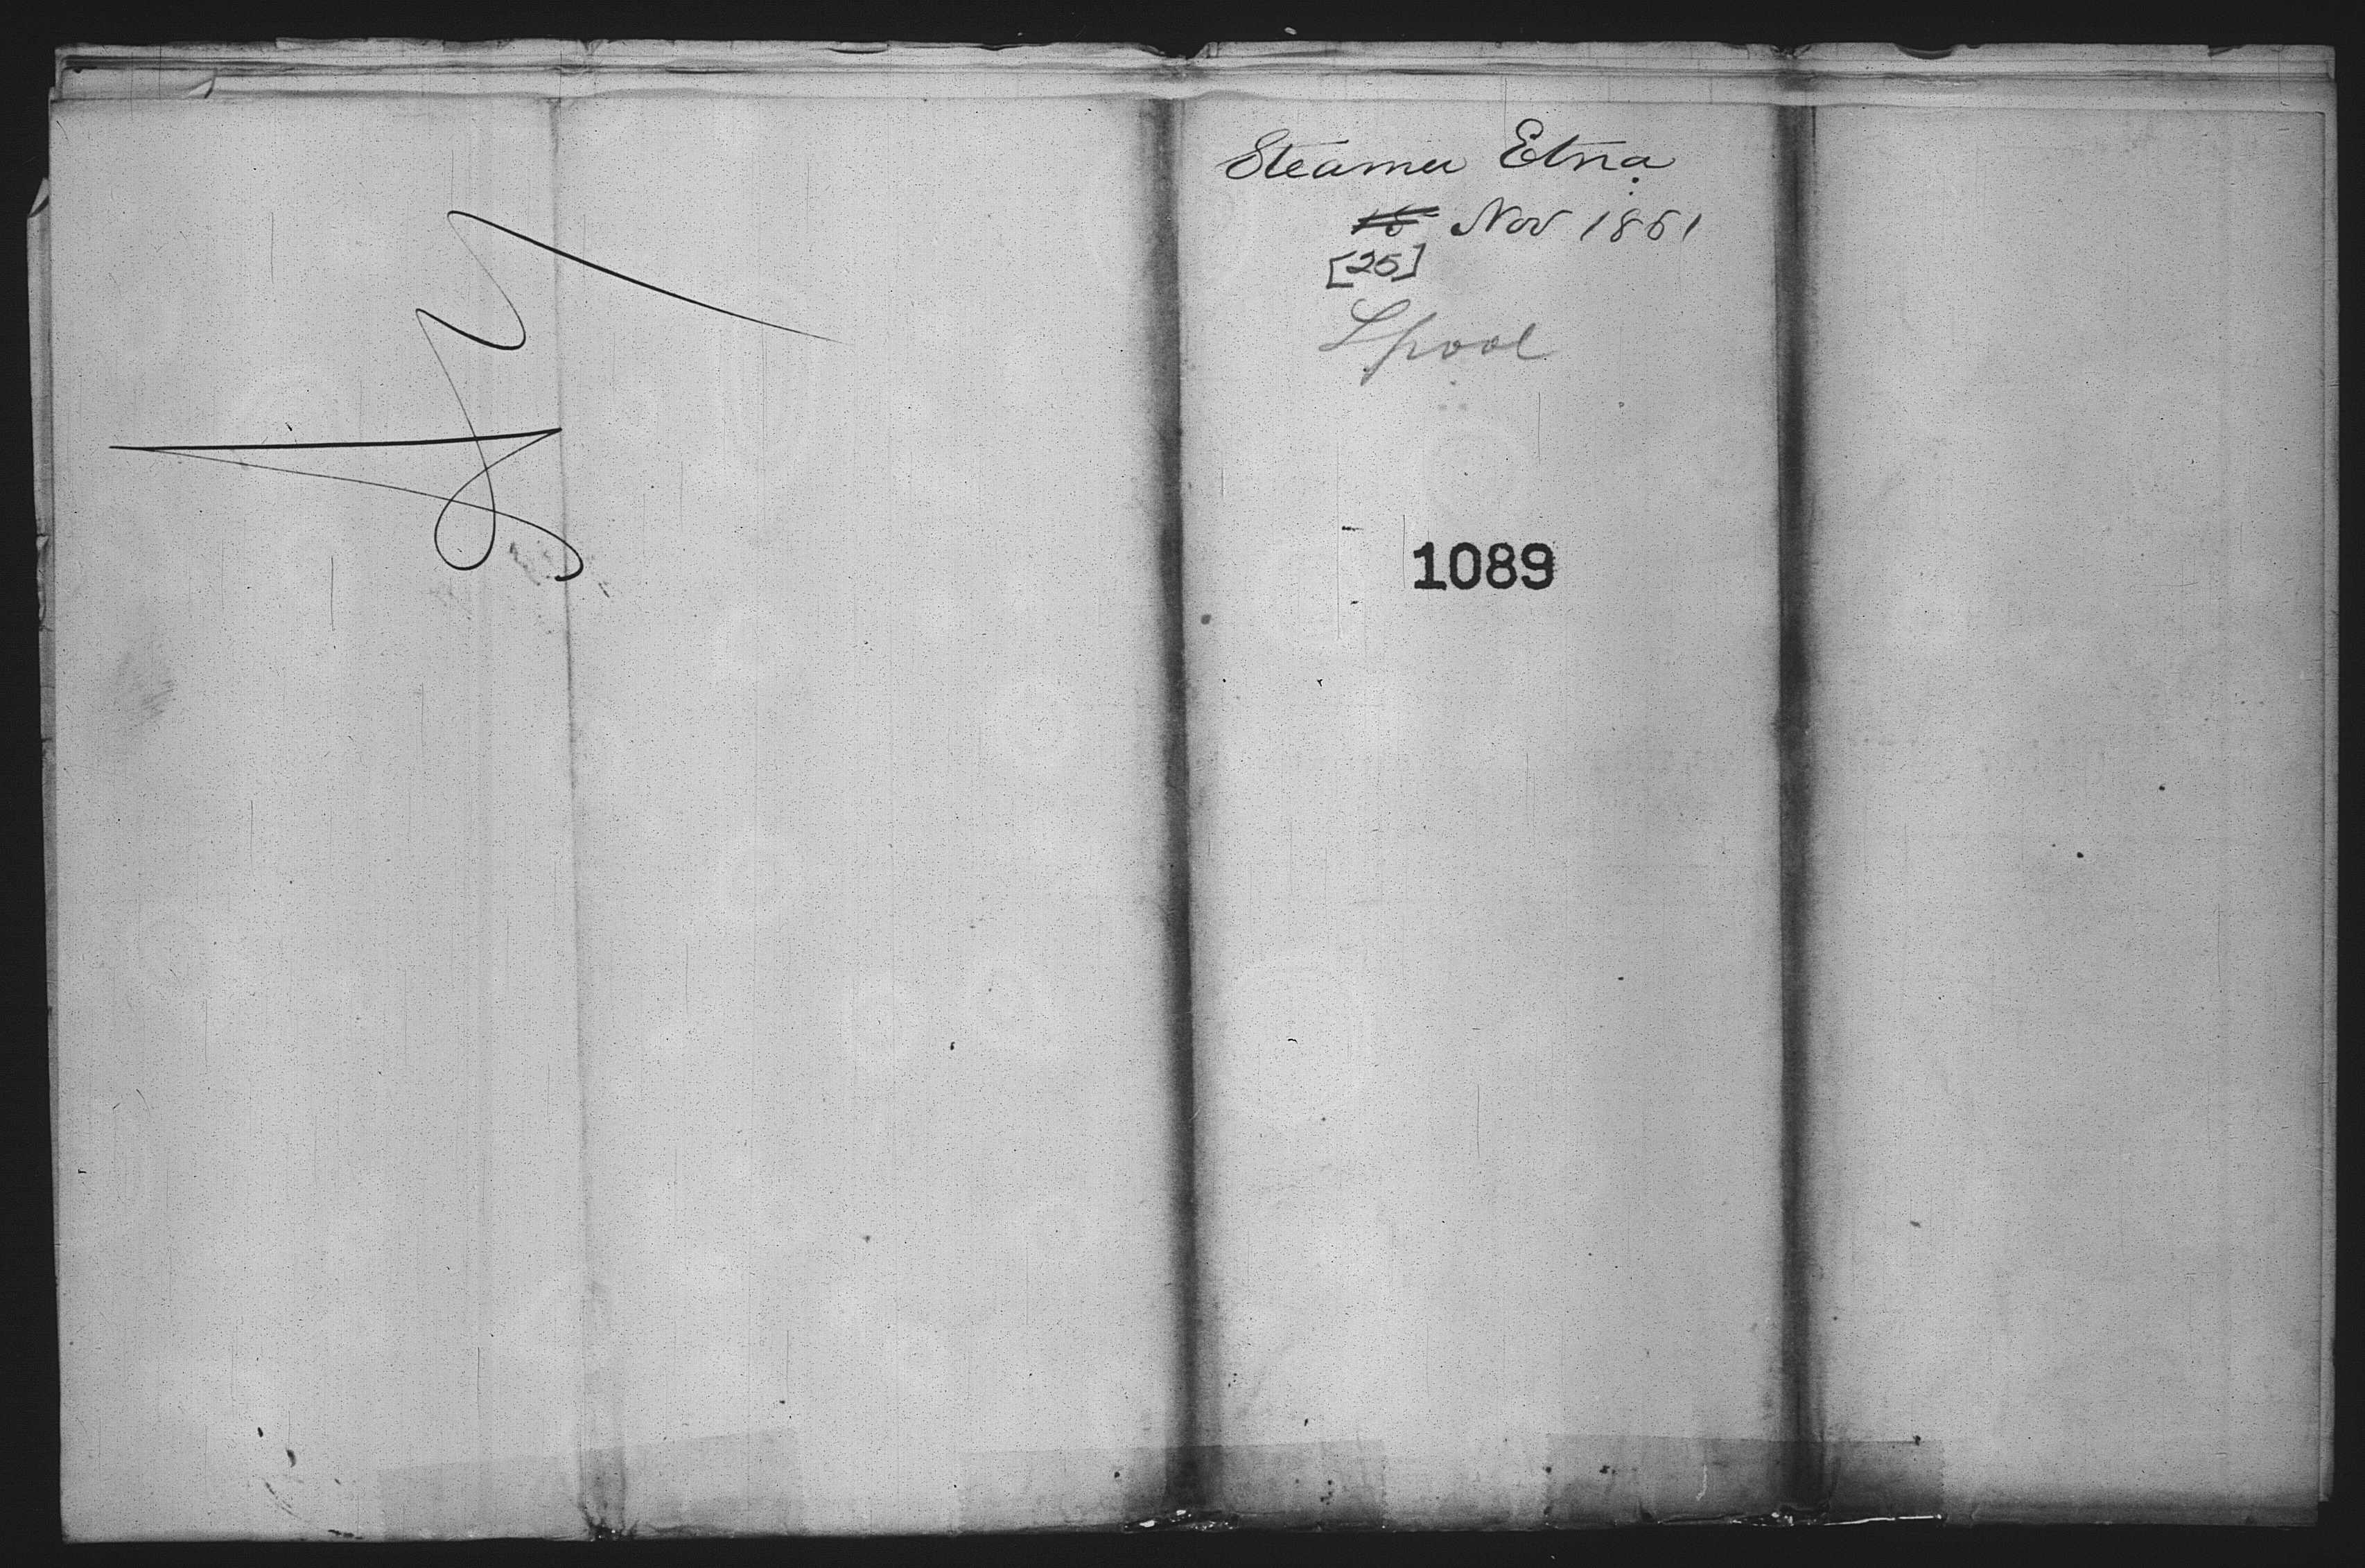 Steamer Etna
16 Nov 1861
[25]
Lpool
1089